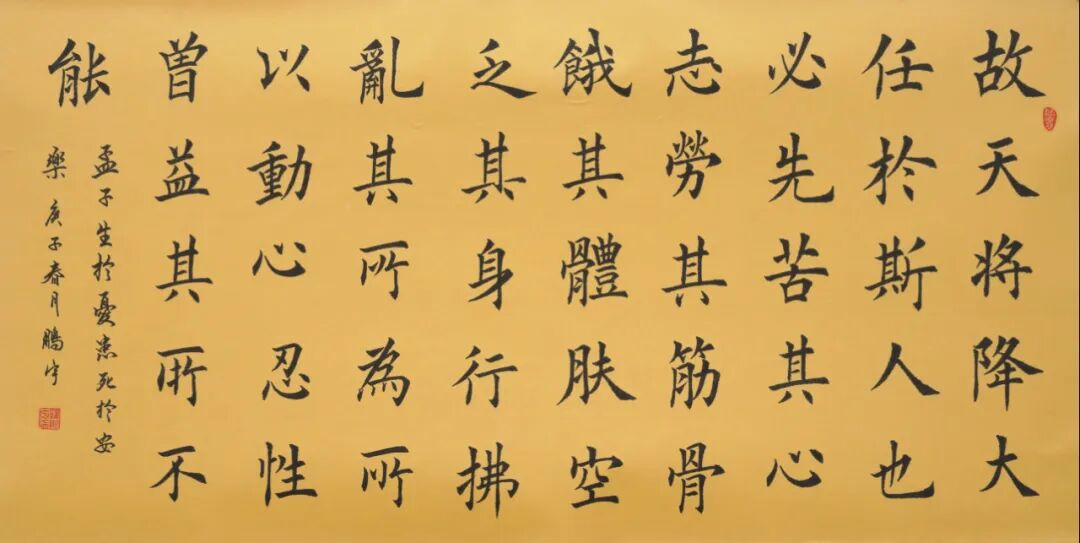 故天将降大
任於斯人也
必先苦其心
志勞其筋骨
餓其體肤空
乏其身行拂
亂其所為所
以動心忍性
曾益其所不
能
孟子生於憂患死於安
樂 庚子春月鵬宇